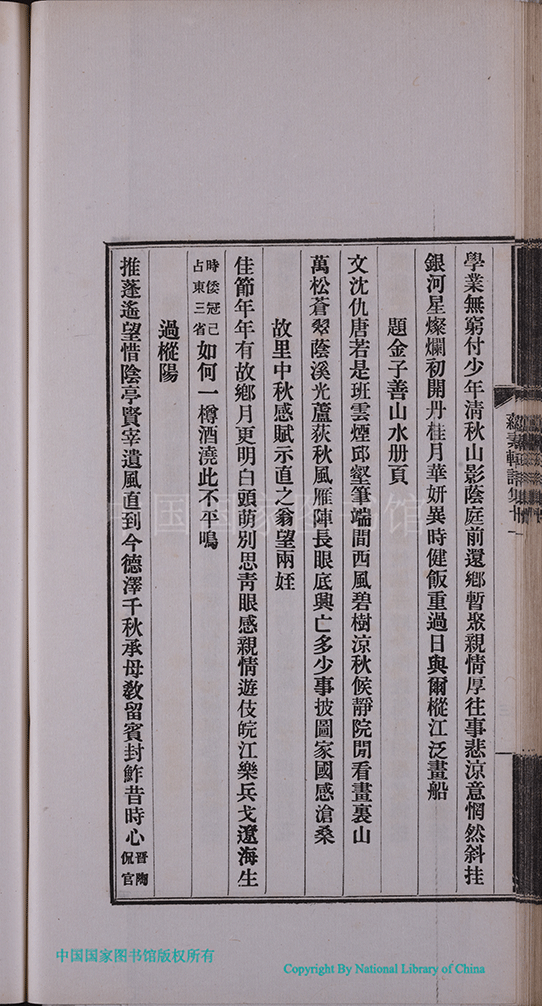 學業無窮付少年清秋山影蔭庭前還鄉暫聚親情厚往事悲涼意惘然斜挂
銀河星燦爛初開丹桂月華妍異時健飯重過日與爾樅江泛畫船
題金子善山水册頁
文沈仇唐若是班雲煙邱壑筆端間西風碧樹涼秋候靜院閒看畫裏山
萬松蒼翠蔭溪光蘆荻秋風雁陣長眼底興亡多少事披圖家國感滄桑
故里中秋感賦示直之翁望兩姪
佳節年年有故鄉月更明白頭萌別思靑眼感親情遊伎皖江樂兵戈遼海生
時倭冠己
占東三省
如何一樽酒澆此不平鳴
過樅陽
推蓬遙望惜陰亭賢宰遺風直到今德澤千秋承母敎留賓封鮓昔時心
晋陶
侃官
詩集十一
中国国家图书馆
中国国家图书馆版权所有
Copyright By National Library of China